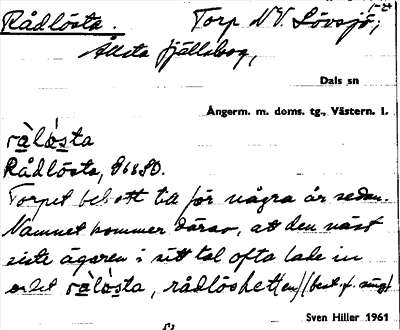 Rådlösta. Torp NV. Lövsjö,
Ållsta fjällskog,
Dals sn
Ångerm. m. doms. tg., Västern. l.
ràlò̱sta
Rådlösta, 86880.
Torpet bebott till för några år sedan.
Namnet kommer därav, att den näst
siste ägaren i sitt tal ofta lade in
ordet ràlò̱sta, rådlöshet(en) (best. f. sing)
Sven Hiller 1961